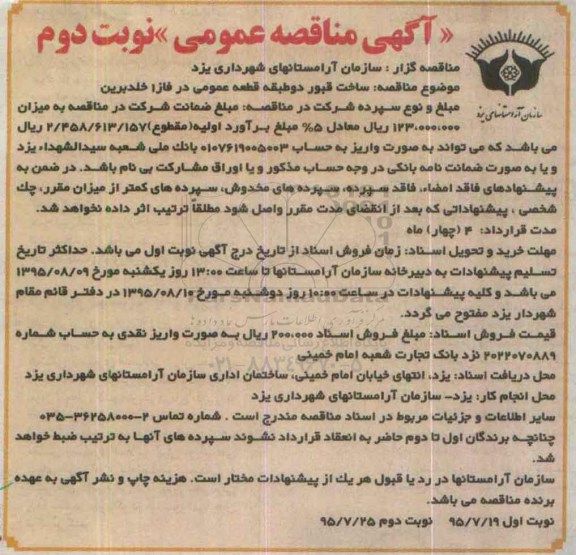 « آگهی مناقصه عمومی »نوبت دوم
سازمان آرامستانهای یزد
مناقصه گزار : سازمان آرامستانهای شهرداری یزد
موضوع مناقصه: ساخت قبور دوطبقه قطعه عمومی در فاز۱ خلدبرین
مبلغ و نوع سپرده شرکت در مناقصه: مبلغ ضمانت شرکت در مناقصه به میزان
۱۲۳،۰۰۰،۰۰۰ ریال معادل ۵% مبلغ برآورد اولیه(مقطوع)۲/۴۵۸/۶۱۳/۱۵۷ ریال
می باشد که می تواند به صورت واریز به حساب ۰۱۰۷۶۱۹۰۰۵۰۰۳ بانك ملی شعبه سیدالشهداء یزد
و یا به صورت ضمانت نامه بانکی در وجه حساب مذکور و یا اوراق مشارکت بی نام باشد. در ضمن به
پیشنهادهای فاقد امضاء، فاقد سپرده، سپرده های مخدوش، سپرده های کمتر از میزان مقرر، چك
شخصی ، پیشنهاداتی که بعد از انقضای مدت مقرر واصل شود مطلقاً ترتیب اثر داده نخواهد شد.
مدت قرارداد: ۴ (چهار) ماه
مهلت خرید و تحویل اسناد: زمان فروش اسناد از تاریخ درج آگهی نوبت اول می باشد. حداکثر تاریخ
تسلیم پیشنهادات به دبیرخانه سازمان آرامستانها تا ساعت ۱۳:۰۰ روز یکشنبه مورخ ۱۳۹۵/۰۸/۰۹
می باشد و کلیه پیشنهادات در ساعت ۱۰:۰۰ روز دوشنبه مورخ ۱۳۹۵/۰۸/۱۰ در دفتر قائم مقام
شهردار یزد مفتوح می گردد.
قیمت فروش اسناد: مبلغ فروش اسناد ۲۰۰،۰۰۰ ریال به صورت واریز نقدی به حساب شماره
۲۰۲۲۰۷۰۸۸۹ نزد بانك تجارت شعبه امام خمینی
محل دریافت اسناد: یزد، انتهای خیابان امام خمینی، ساختمان اداری سازمان آرامستانهای شهرداری یزد
محل انجام کار: یزد- سازمان آرامستانهای شهرداری یزد
سایر اطلاعات و جزئیات مربوط در اسناد مناقصه مندرج است . شماره تماس ۲-۳۶۲۵۸۰۰۰-۰۳۵
چنانچه برندگان اول تا دوم حاضر به انعقاد قرارداد نشوند سپرده های آنها به ترتیب ضبط خواهد
شد.
سازمان آرامستانها در رد یا قبول هر یك از پیشنهادات مختار است. هزینه چاپ و نشر آگهی به عهده
برنده مناقصه می باشد.
نوبت اول ۹۵/۷/۱۹ نوبت دوم ۹۵/۷/۲۵